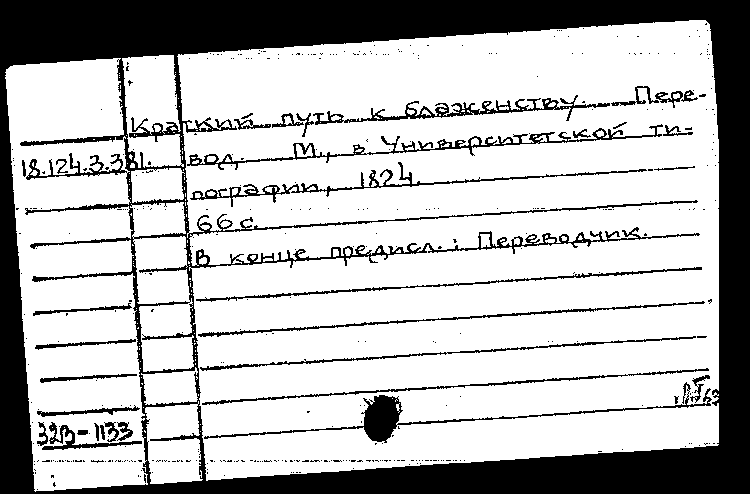 Краткий путь к блаженству. Пере-
18.124.3.381. вод. М., в Университетской ти-
пографии, 1824.
66 с.
В конце предисл.: Переводчик.
32В-1133